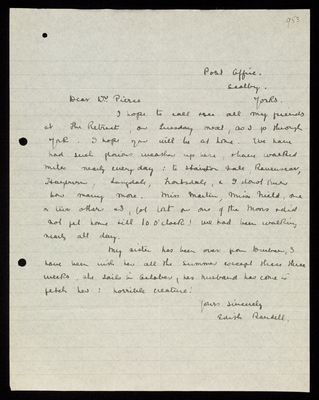 953
Post Office.
Scalby.
Yorks.
Dear Dr Pierce
I hope to call & see all my friends
at The Retreat, on Tuesday next, as I go through
York. I hope you will be at home. We have
had such glorious weather up here, & have walked
miles nearly every day: to Hackness, Ravenscar,
Hayburn, Langdale, Troutsdale, & I don't know
how many more. Miss Martin, Miss Nield, one
or two other & I, got lost on one of the Moors & did
not get home till 10 O'clock! We had been walking
nearly all day.
My sister has been over from Durban, I
have been with her all the Summer except these three
weeks, she sails in October, her husband has come to
fetch her: horrible creature!
Yours sincerely
Edith Randell.